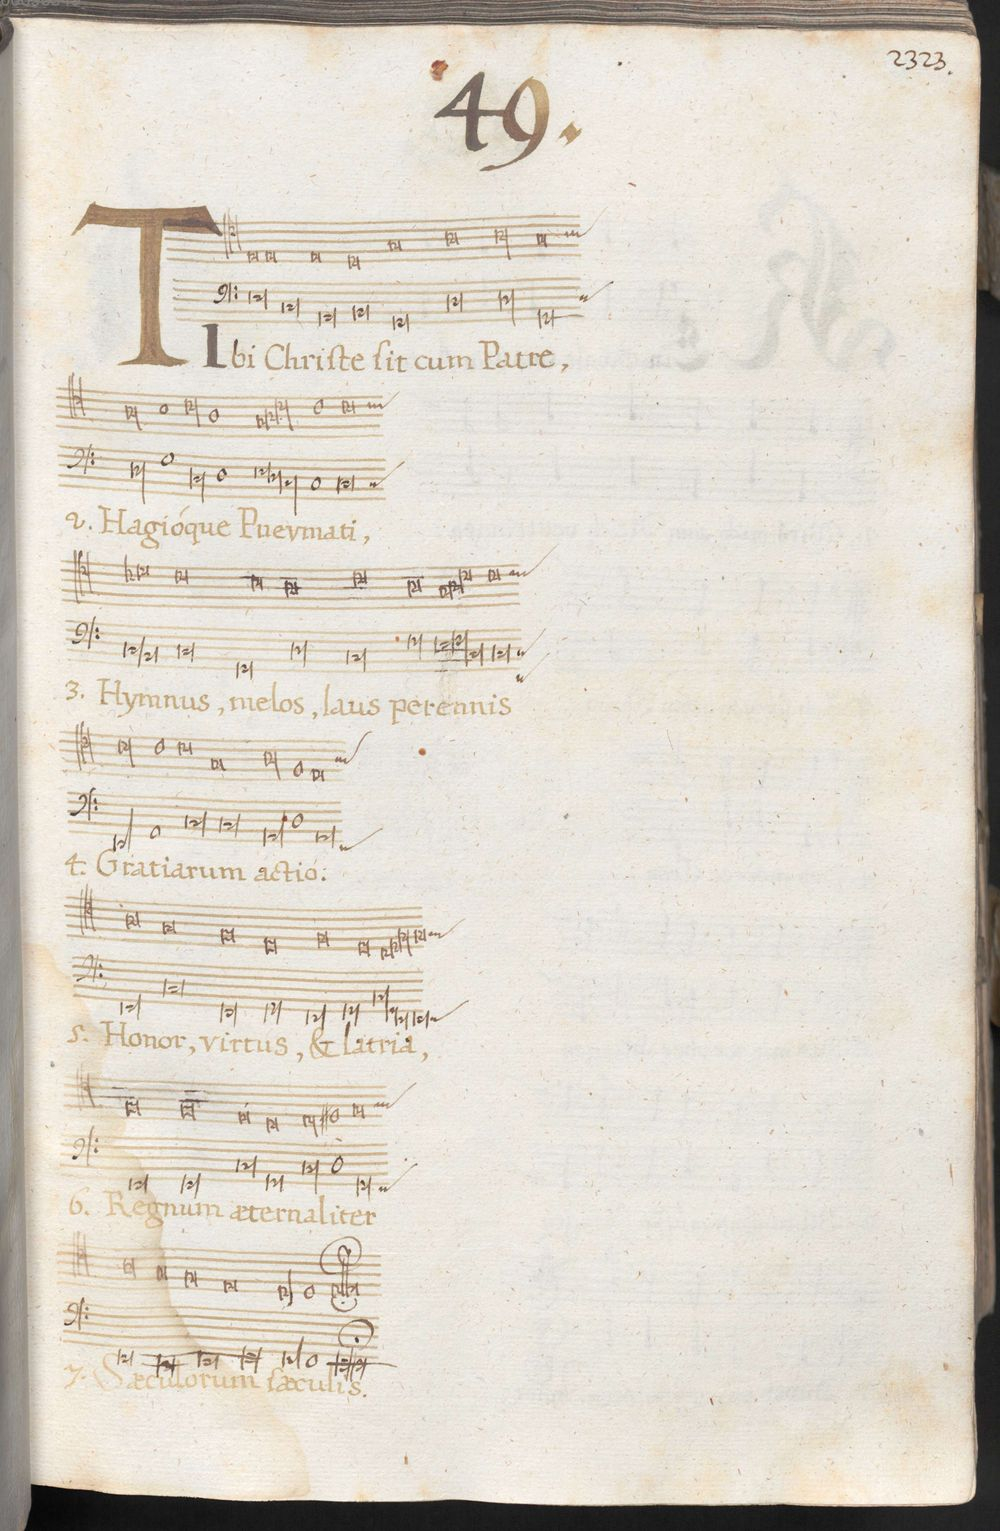 2323.
49.
TIbi Christe sit cum Patre,
2. Hagióque Pnevmati,
3. Hymnus, melos, laus perennis
4. Gratiarum actio.
5. Honor, virtus, & latria,
6. Regnum æternaliter
7. Sæculorum sæculis.